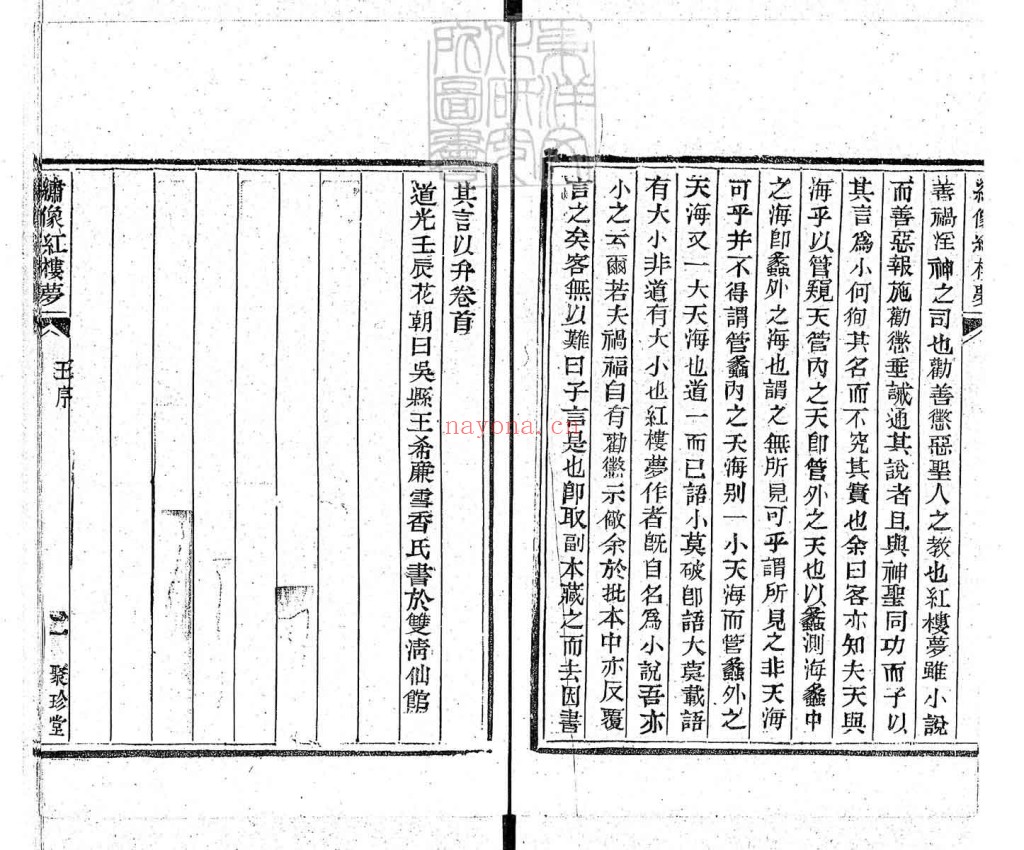 善禍淫神之司也勸善懲惡聖人之教也紅樓夢雖小說
而善惡報施勸懲垂誡通其說者且與神聖同功而子以
其言爲小何徇其名而不究其實也余曰客亦知夫天與
海乎以管窺天管內之天卽管外之天也以蠡測海蠡中
之海卽蠡外之海也謂之無所見可乎謂所見之非天海
可乎并不得謂管蠡內之天海别一小天海而管蠡外之
天海又一大天海也道一而已語小莫破卽語大莫載語
有大小非道有大小也紅樓夢作者旣自名爲小說吾亦
小之云爾若夫禍福自有勸懲示儆余於批本中亦反覆
言之矣客無以難曰子言是也卽取副本藏之而去因書
其言以弁卷首
道光壬辰花朝日吳縣王希廉雪香氏書於雙清仙館
繡像紅樓夢
王序
二
聚珍堂
nayona.cn